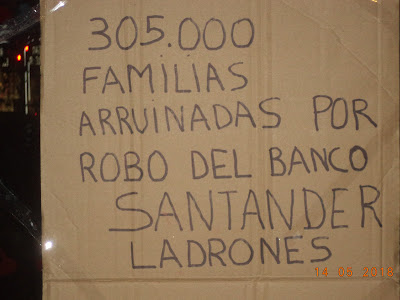 305.000
FAMILIAS
ARRUINADAS POR
ROBO DEL BANCO
SANTANDER
LADRONES